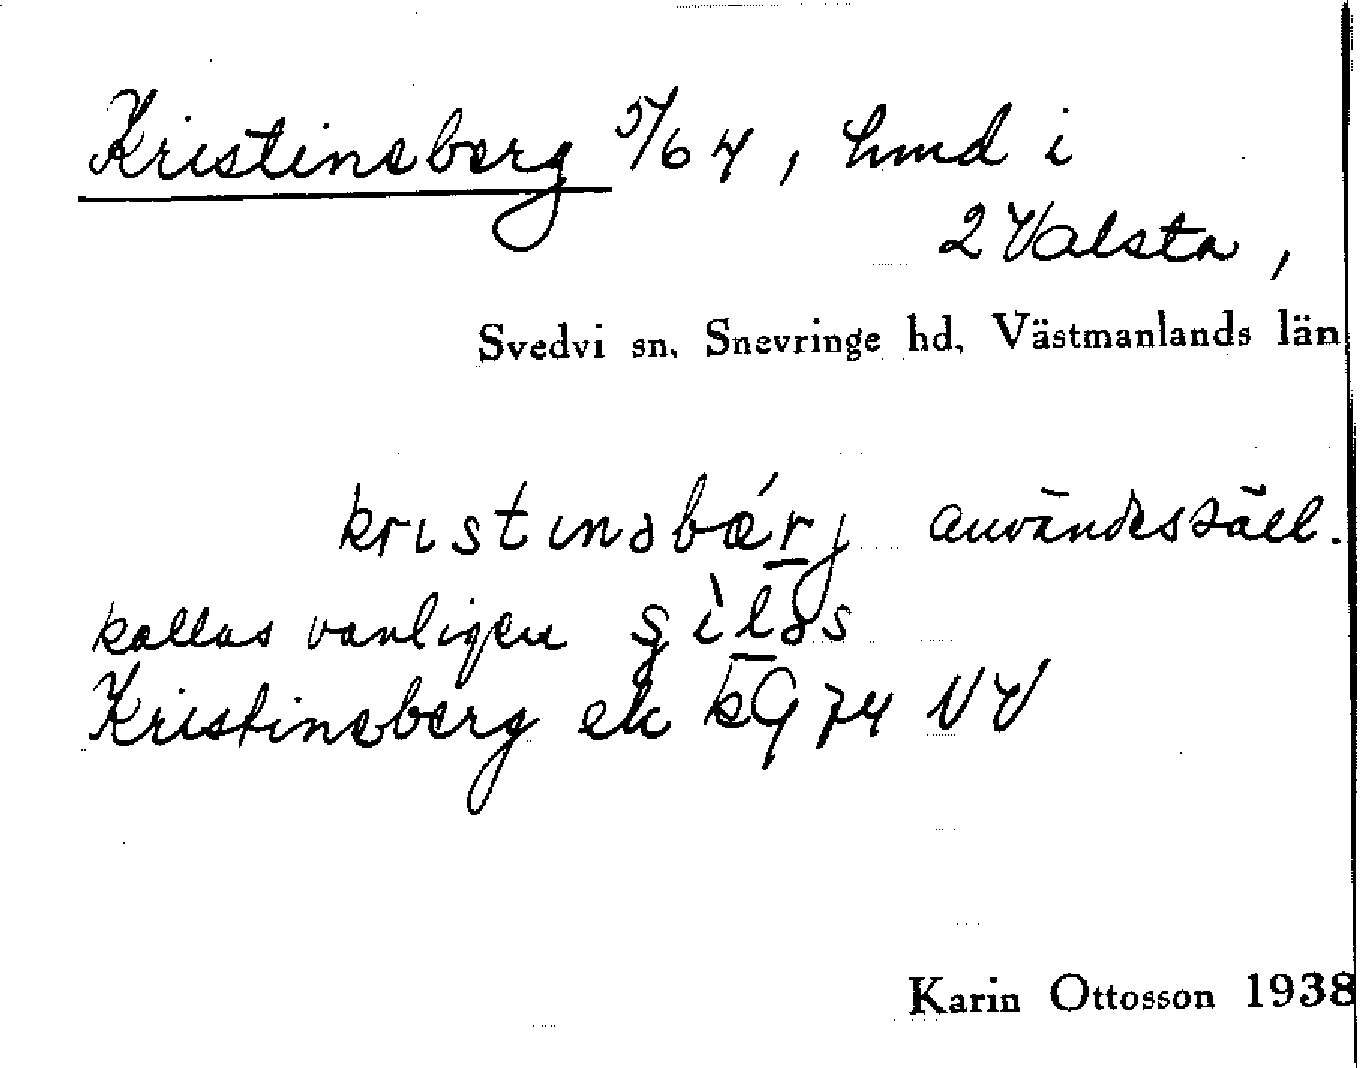 Kristineberg 5/64, hmd i
2 Valsta,
Svedvi sn, Snevringe hd, Västmanlands län
kristinəbǽrj användes säll.
kallas vanligen s̀iləs
Kristineberg ek kG 74 NV
Karin Ottosson 1938